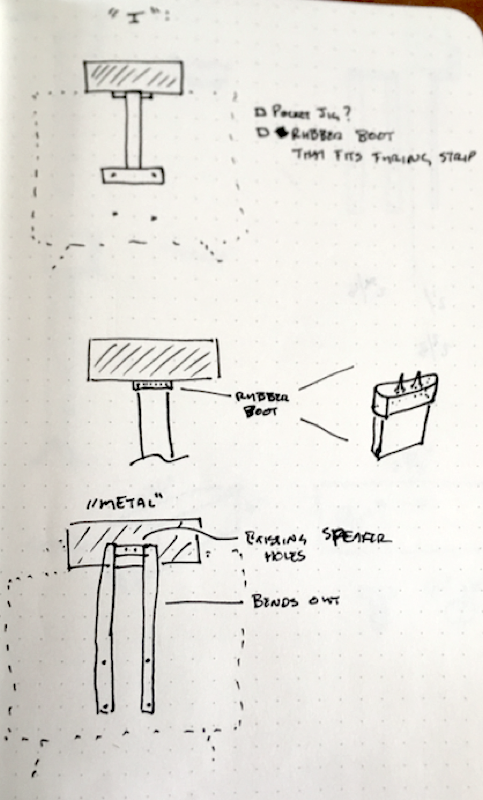 "I":
POCKET JIG?
RUBBER BOOT
THAT FITS FURING STRIP
RUBBER
BOOT
"METAL"
EXISTING SPEAKER
HOLES
BENDS OUT